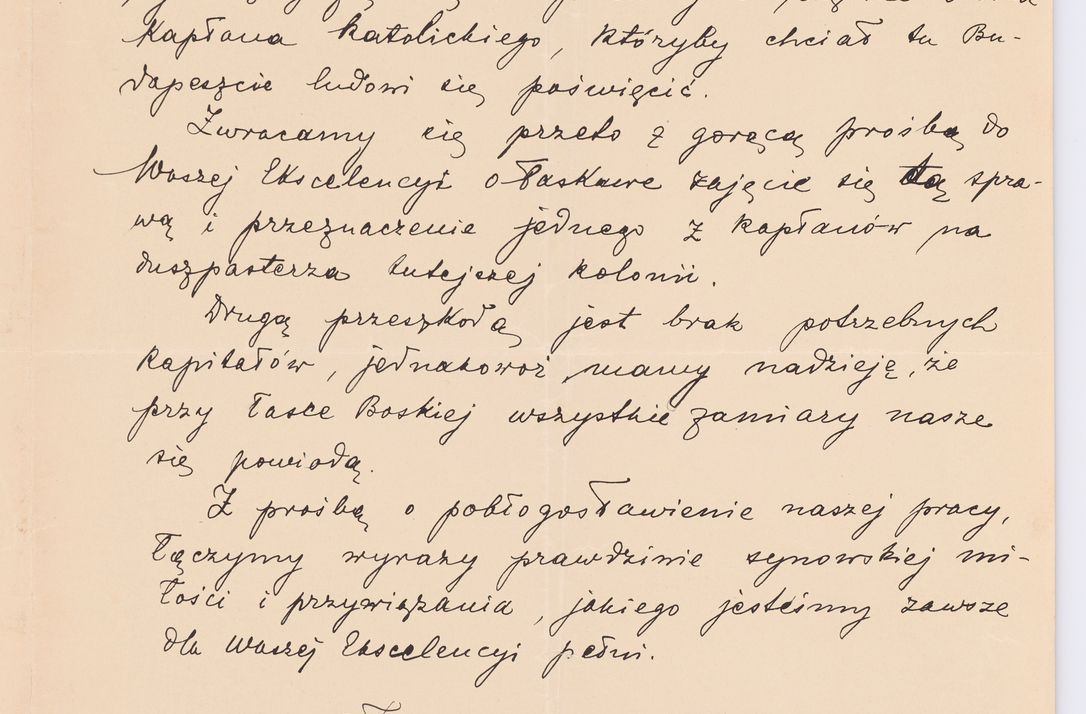 kapłana katolickiego, któryby chciał tu Bu-
dapeszcie ludowi się poświęcić.
Zwracamy się przeto z gorącą prośbą do
Waszej Ekscelencyi o łaskawe zajęcie się tą spra-
wą i przeznaczenie jednego z kapłanów na
duszpasterza tutejszej kolonii.
Drugą przeszkodą jest brak potrzebnych
kapitałów, jednakowoż, mamy nadzieję, że
przy łasce Boskiej wszystkie zamiary nasze
się powiodą.
Z prośbą o pobłogosławienie naszej pracy,
łączymy wyrazy prawdziwie synowskiej mi-
łości i przywiązania, jakiego jesteśmy zawsze
dla Waszej Ekscelencyi pełni.